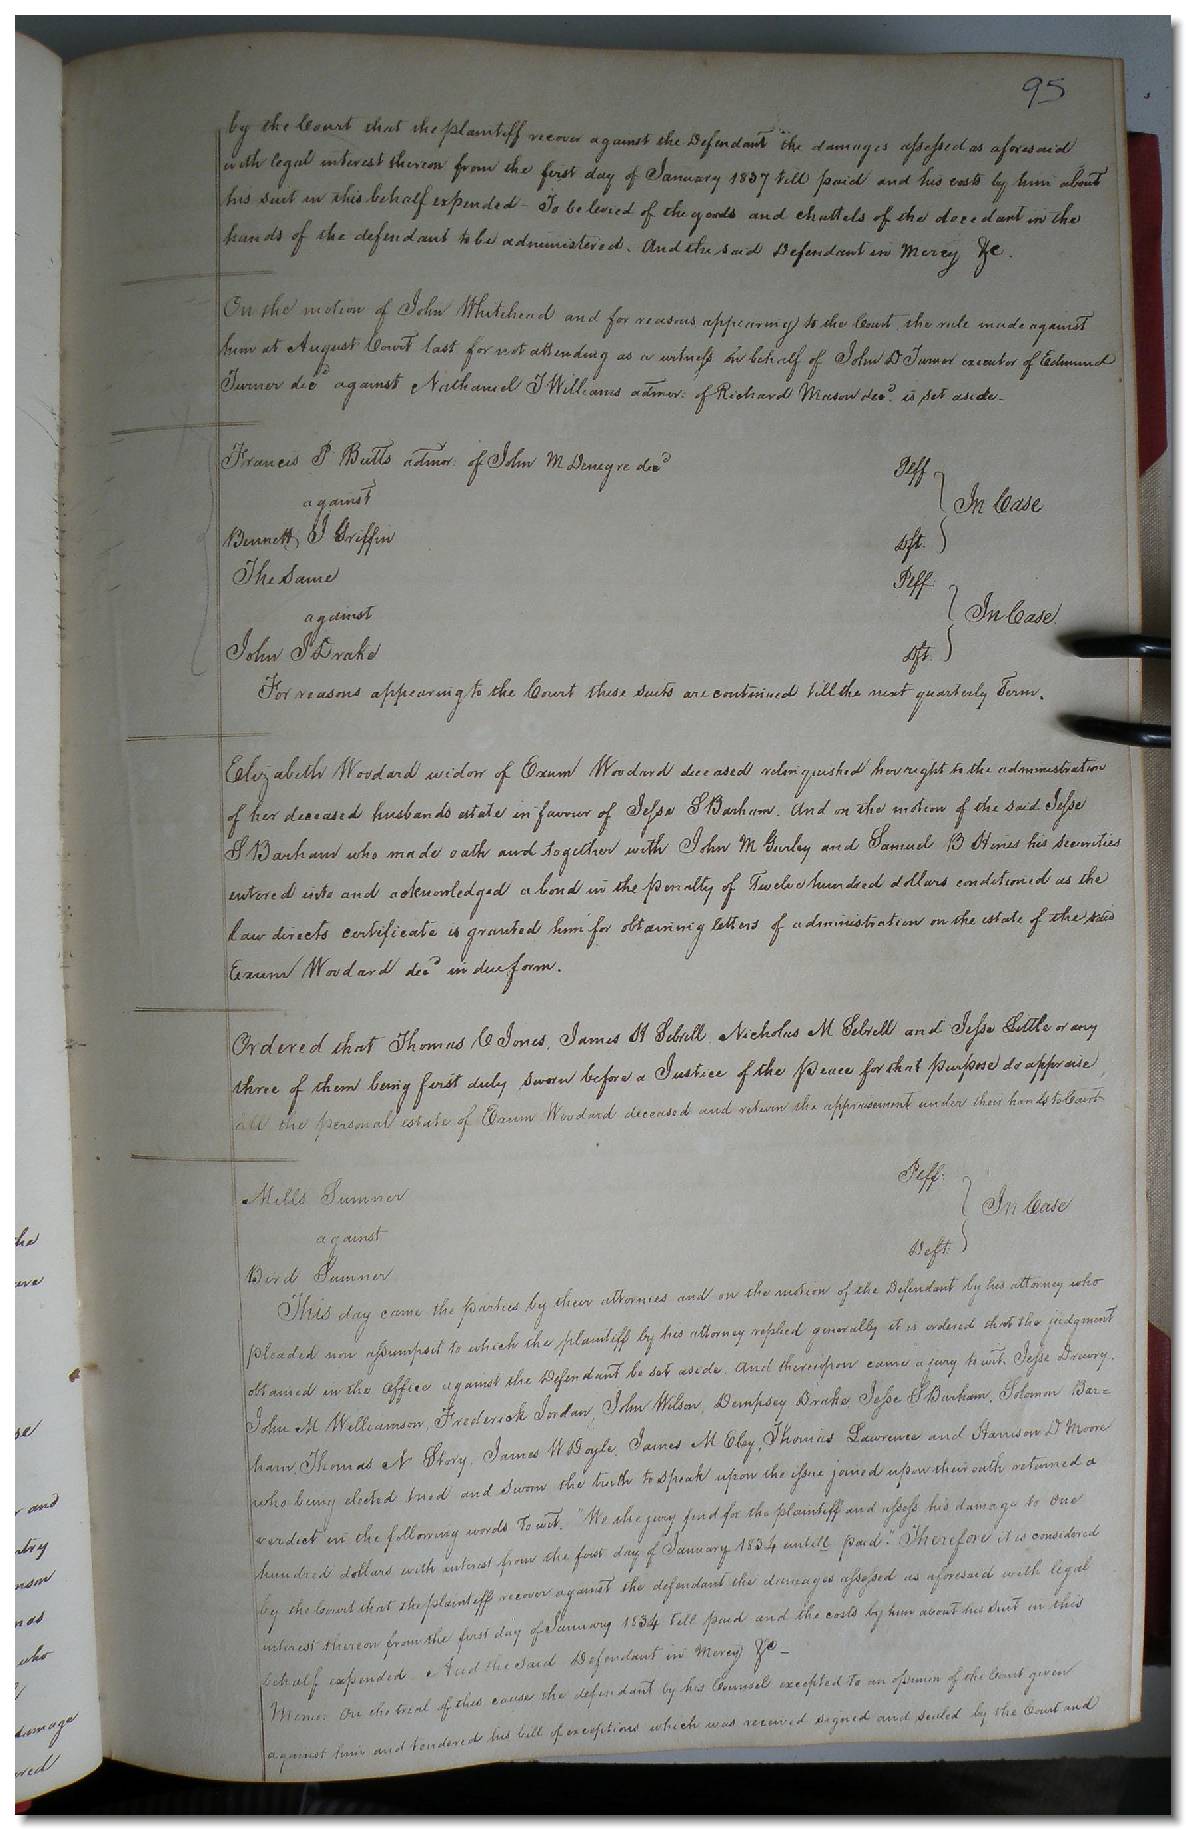 95
by the Court that the plaintiff recover against the Defendant the damages assessed as aforesaid
with legal interest thereon from the first day of January 1837 till paid and his costs by him about
his suit in this behalf expended - To be levied of the goods and chattels of the decedant in the
hands of the defendant to be administered. And the said Defendant in Mercy &c.
On the motion of John Whitehead and for reasons appearing to the Court, the rule made against
him at August Court last for not attending as a witness in behalf of John D Turner executor of Edmund
Turner decd against Nathaniel T Williams admor: of Richard Mason decd. is set aside -
Francis P Butts admor: of John M Denegre decd Pltff
against In Case
Bennett J Griffin Dft.
The Same Pltff
against In Case.
John P Drake Dft.
For reasons appearing to the Court these suits are continued till the next quarterly Term.
Elizabeth Woodard widow of Exum Woodard deceased relinquished her right to the administration
of her deceased husbands estate in favour of Jesse S Barham. And on the motion of the said Jesse
S Barham who made oath and together with John M Gurley and Samuel B Hines his securities
entered into and acknowledged a bond in the penalty of Twelve hundred dollars conditioned as the
law directs certificate is granted him for obtaining letters of administration on the estate of the said
Exum Woodard decd in due form.
Ordered that Thomas C Jones, James H Sebrell, Nicholas M Sebrell and Jesse Little or any
three of them being first duly sworn before a Justice of the peace for that purpose do appraise
all the personal estate of Exum Woodard deceased and return the appraisement under their hands to Court
Mills Sumner Pltff:
against In Case
Bird Sumner Deft.
This day came the parties by their attornies and on the motion of the Defendant by his attorney who
pleaded non assumpsit to which the plaintiff by his attorney replied generally it is ordered that the judgment
obtained in the office against the Defendant be set aside. And thereupon came a jury to wit, Jesse Drewry,
John M Williamson, Frederick Jordan, John Wilson, Dempsey Drake, Jesse S Barham, Solomon Bar=
ham, Thomas N Story, James W Doyle, James M Eley, Thomas Lawrence and Harrison D Moore
who being elected tried and sworn the truth to speak upon the issue joined upon their oath returned a
verdict in the following words To wit. "We the jury find for the plaintiff and assess his damage to One
hundred dollars with interest from the first day of January 1834 untill paid." Therefore it is considered
by the Court that the plaintiff recover against the defendant the damages assessed as aforesaid with legal
interest thereon from the first day of January 1834 till paid and the costs by him about his suit in this
behalf expended. And the said Defendant in Mercy &c -
Memo: On the trial of this cause the defendant by his Counsel excepted to an opinion of the Court given
against him and tendered his bill of exceptions which was received signed and sealed by the Court and
he
and
ntry
who
damage